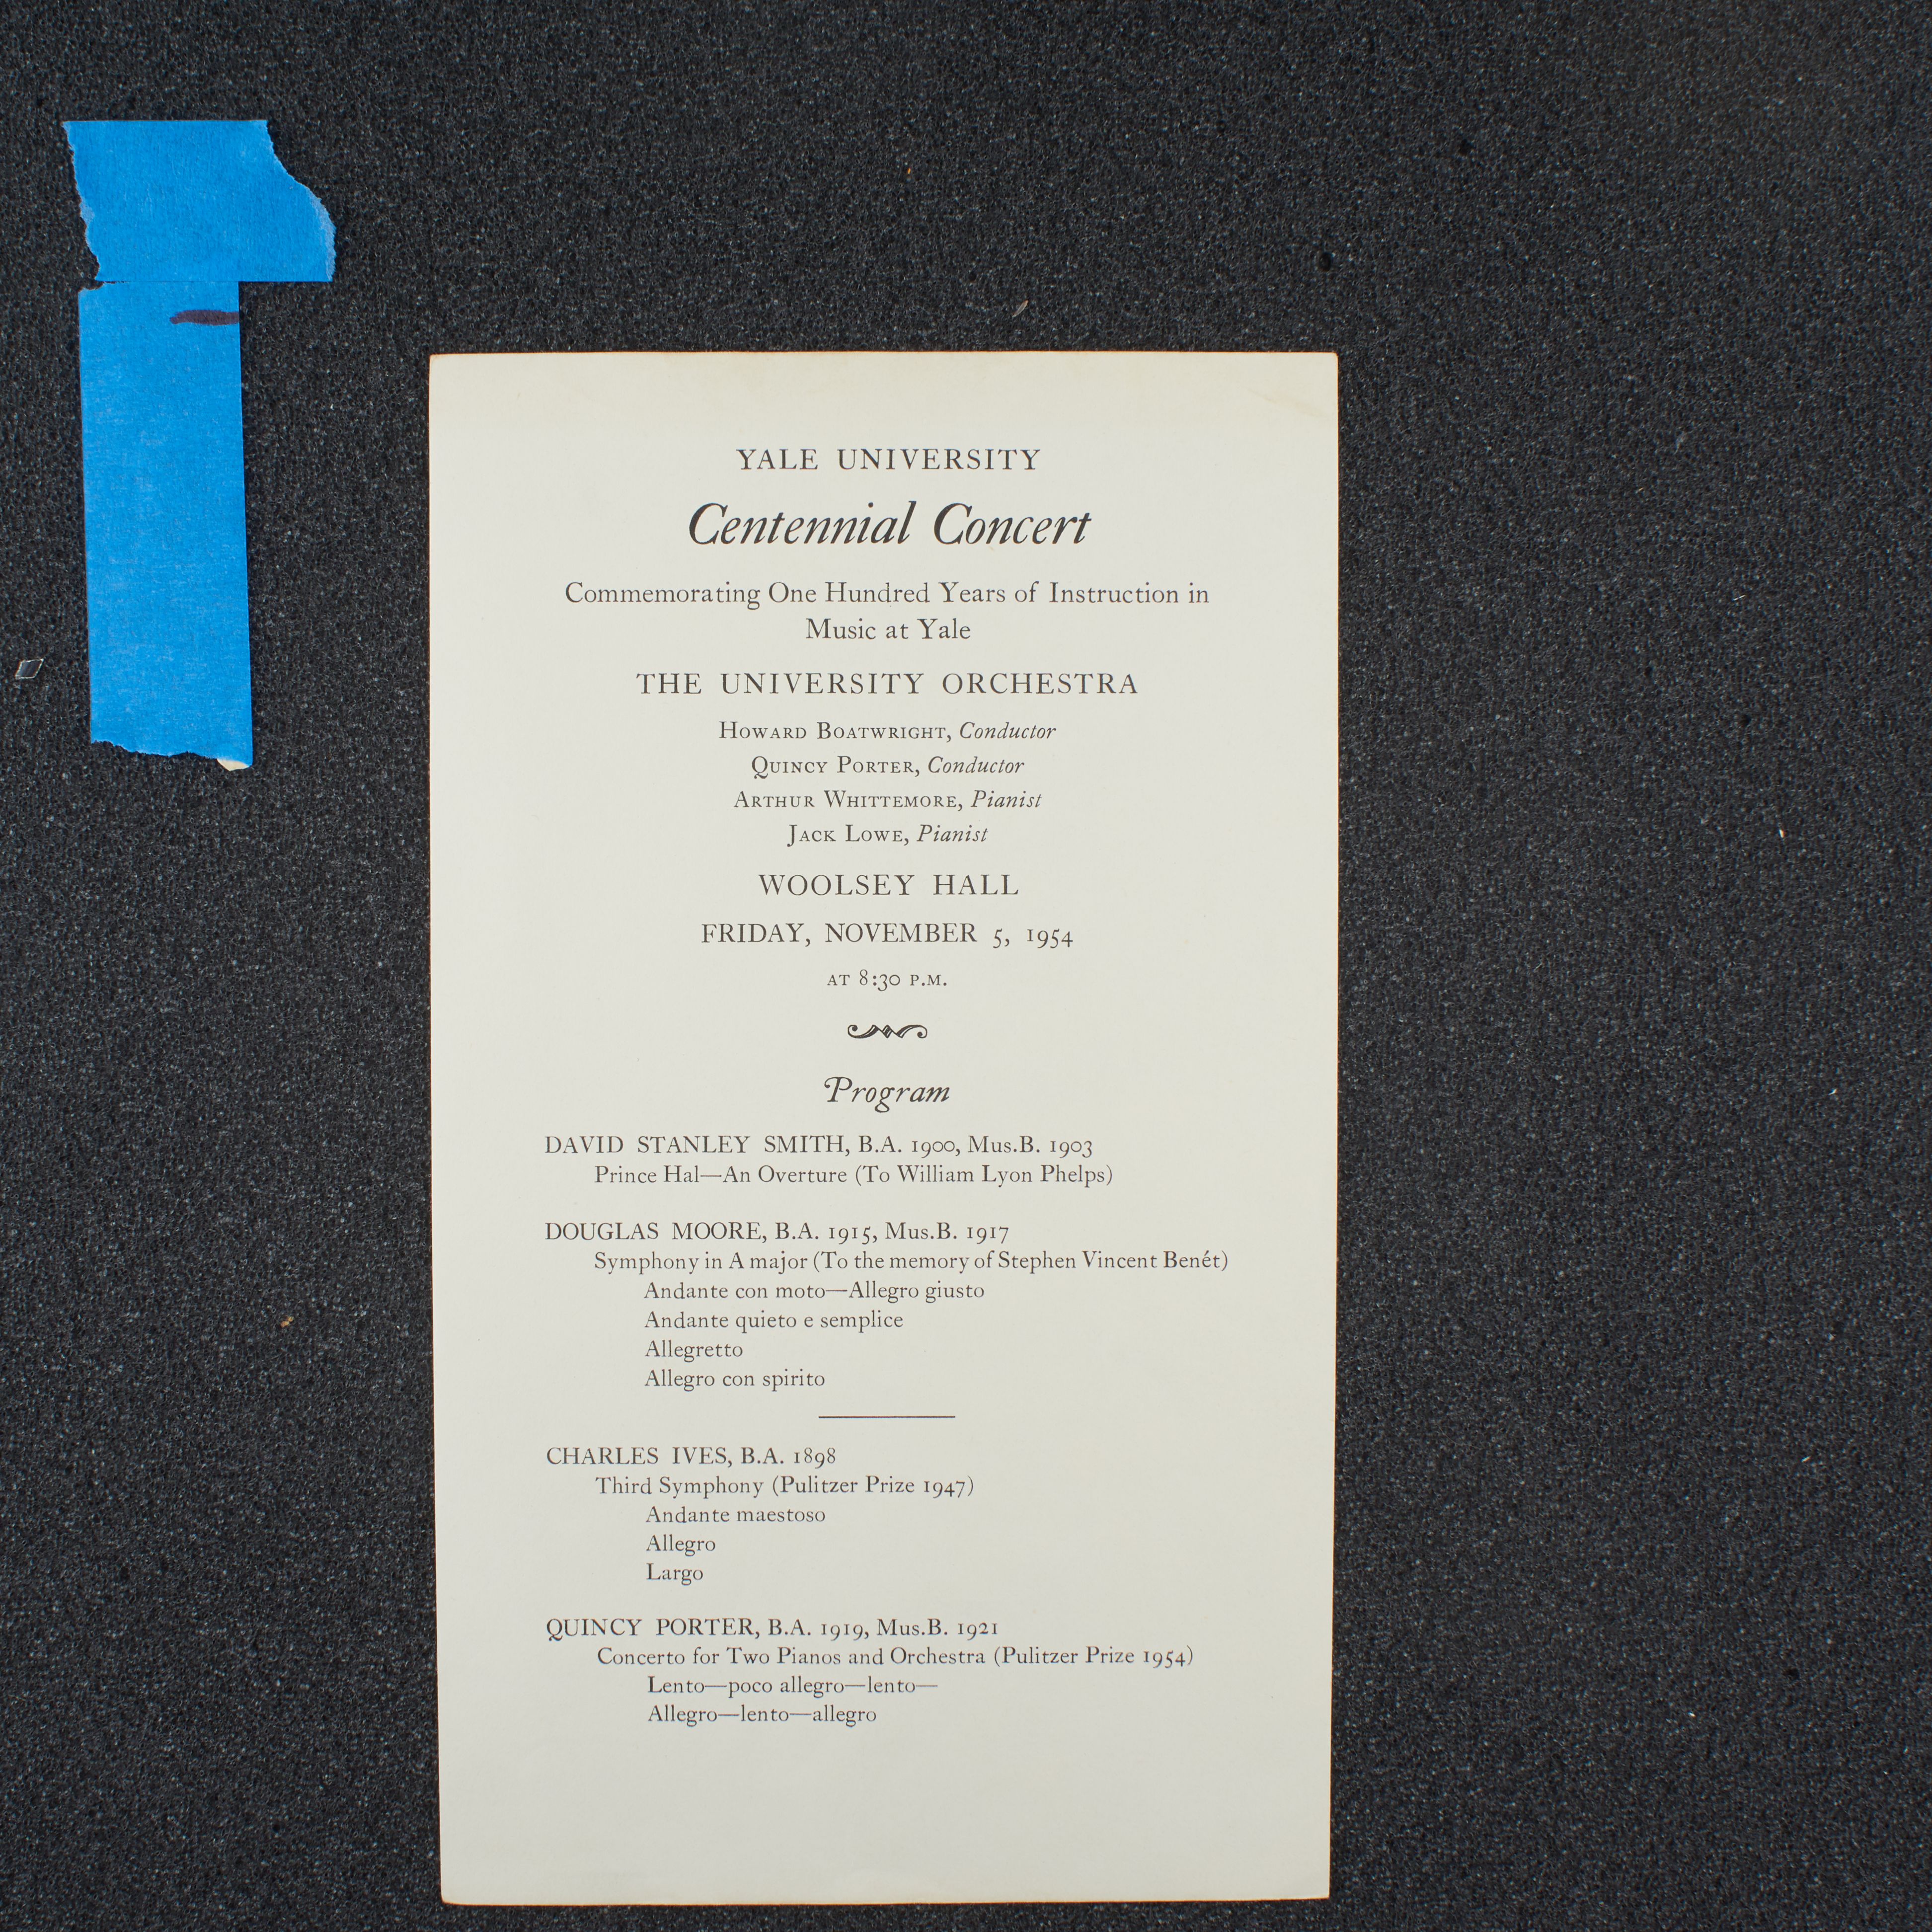 YALE UNIVERSITY
Centennial Concert
Commemorating One Hundred Years of Instruction in
Music at Yale
THE UNIVERSITY ORCHESTRA
HOWARD BOATWRIGHT, Conductor
QUINCY PORTER, Conductor
ARTHUR WHITTEMORE, Pianist
JACK LOWE, Pianist
WOOLSEY HALL
FRIDAY, NOVEMBER 5, 1954
AT 8:30 P.M.
Program
DAVID STANLEY SMITH, B.A. 1900, Mus.B. 1903
Prince Hal—An Overture (To William Lyon Phelps)
DOUGLAS MOORE, B.A. 1915, Mus.B. 1917
Symphony in A major (To the memory of Stephen Vincent Benét)
Andante con moto—Allegro giusto
Andante quieto e semplice
Allegretto
Allegro con spirito
CHARLES IVES, B.A. 1898
Third Symphony (Pulitzer Prize 1947)
Andante maestoso
Allegro
Largo
QUINCY PORTER, B.A. 1919, Mus.B. 1921
Concerto for Two Pianos and Orchestra (Pulitzer Prize 1954)
Lento—poco allegro—lento—
Allegro—lento—allegro